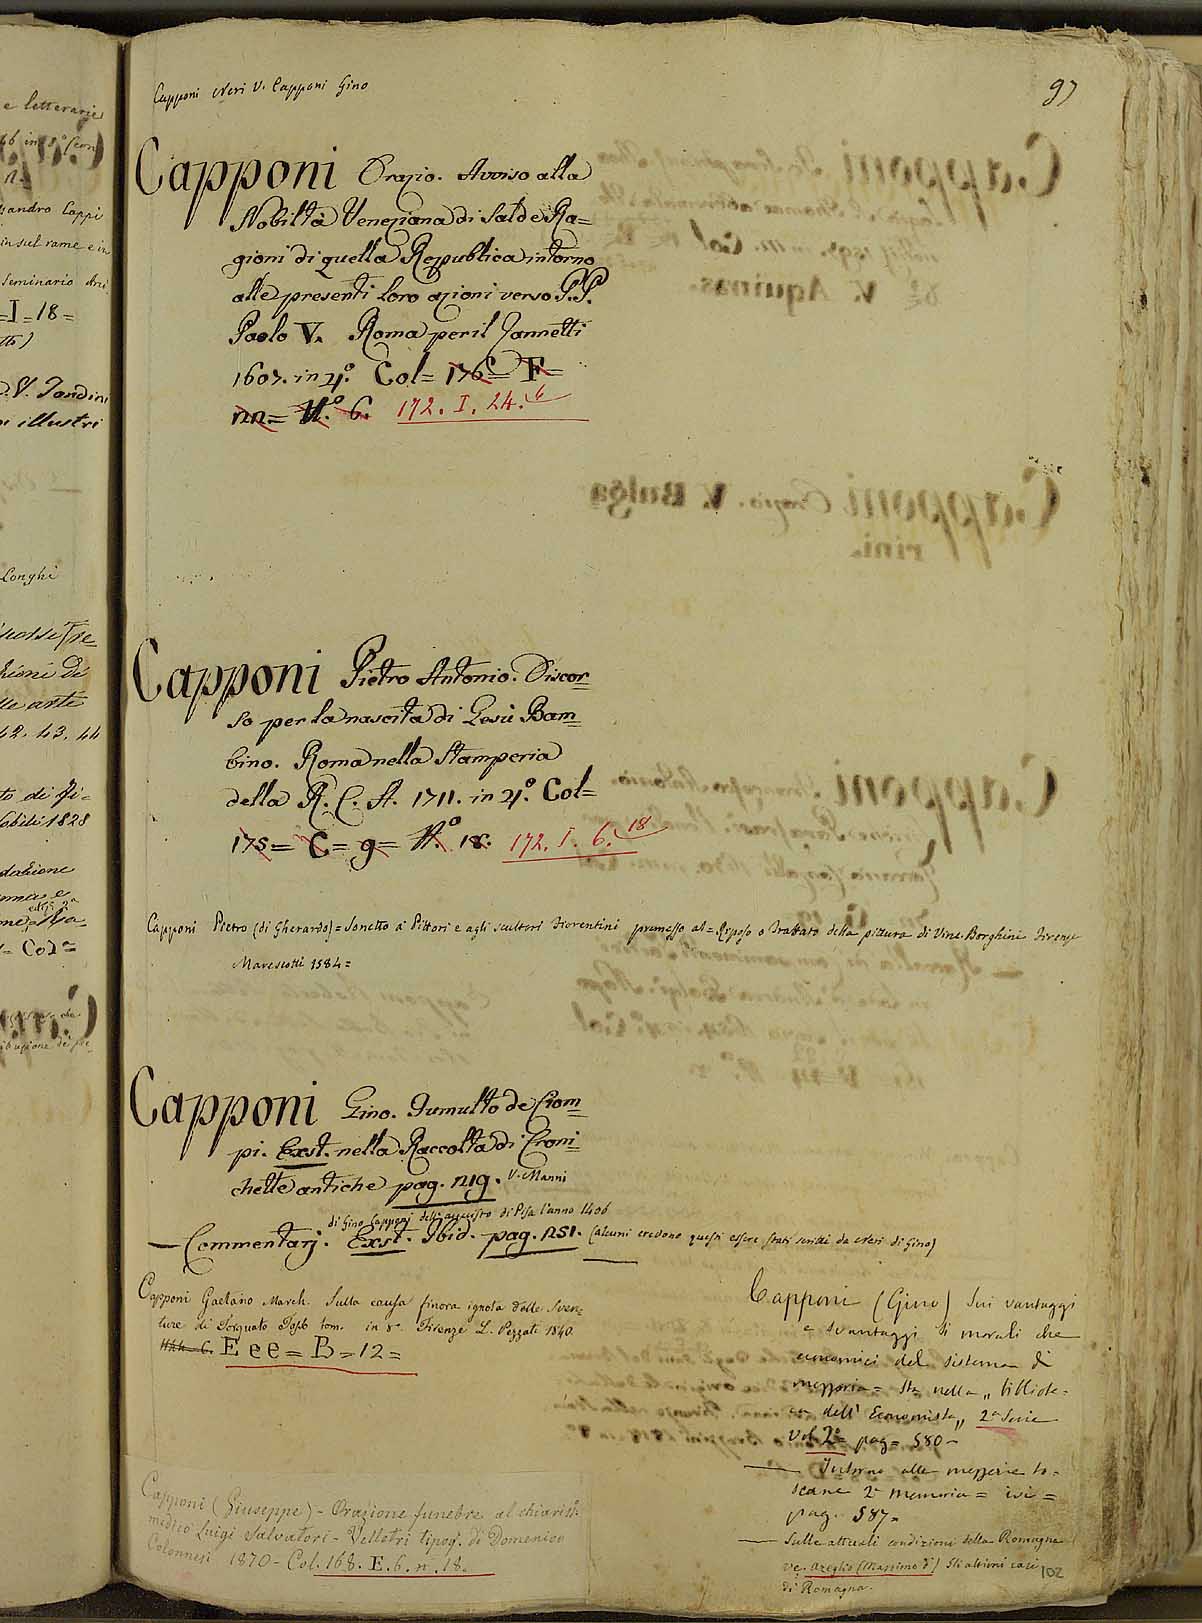 Capponi Neri V. Capponi Gino
97
Capponi Orazio. Avviso alla
Nobiltà Veneziana di Salde Ra=
gioni di quella Republica intorno
alle presenti loro azioni verso P.P.
Paolo V. Roma per il Zannetti
1607. in 4.° Col= 176= F=
nn= N.° 6. 172. I. 24. 6
Capponi Pietro Antonio. Discor=
so per la nascita di Gesù Bam=
bino. Roma nella Stamperia
della R. C. A. 1711. in 4.° Col=
175= C= g= N.° 18. 172. I. 6. 18
Capponi Pietro (di Gherardo)= Sonetto a' Pittori e agli scultori Fiorentini premesso al= Riposo o Trattato della pittura di Vinc. Borghini Firenze
Marescotti 1584=
Capponi Gino. Tumulto de Ciom=
pi. Exst. nella Raccolta di Croni=
chette antiche pag. 219. V. Manni
di Gino Capponj dell'acquisto di Pisa l'anno 1406
— Commentarj. Exst. Ibid. pag. 251. (alcuni credono questi essere stati scritti da Neri di Gino)
Capponi Gaetano March. Sulla causa finora ignota delle Sven=
ture di Torquato Tasso tom. in 8° Firenze L. Pezzati 1840
Eee= B=12=
Capponi (Giuseppe) - Orazione funebre al chiariss.
medico Luigi Salvatori - Velletri tipog. di Domenico
Colonnesi 1870 - Col. 168. E. 6. n. 18.
Capponi (Gino) Sui vantaggi
e svantaggi sì morali che
economici del sistema di
mezzeria= Sta nella „ bibliote=
ca dell' Economista„ 2ª Serie
Vol 2° pag= 580-
— Intorno alle mezzerie to=
scane 2ª memoria= ivi=
pag. 587=
— Sulle attuali condizioni della Romagna
ve. Azeglio (Massimo d') Gli ultimi casi
di Romagna.
102
e letterarie
sandro Cappi
in sul rame e in
Seminario
=I=18=
illustri
Longhi
42. 43. 44
1828